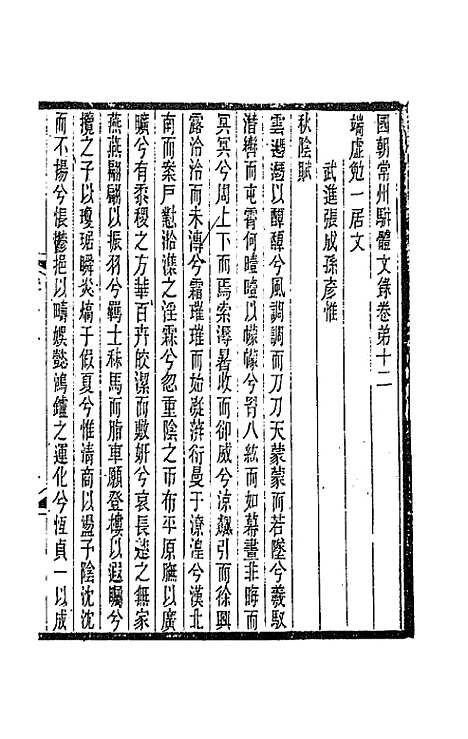 國朝常州駢體文錄卷弟十二
端虛勉一居文
武進張成孫彥惟
秋陰賦
雲遞遞以馣馣兮風調調而刀刀天蒙蒙而若墜兮羲馭
潛轡而屯霄何曀曀以幪幪兮胥八紘而如幕晝非晦而
冥冥兮周上下而焉索溽暑收而卻威兮涼飆引而徐興
露泠泠而未漙兮霜璀璀而始凝漭衍曼于潦湟兮漢北
南而案戶懟淊濼之淫霖兮忽重陰之帀布平原膴以廣
曠兮有黍稷之方華百卉皎潔而敷妍兮哀長楚之無家
燕燕翩翩以振羽兮羈士秣馬而脂車願登樓以遐矚兮
攬之子以瓊琚瞬炎熇于假夏兮惟清商以盪予陰沈沈
而不揚兮悵鬱挹以疇娛懿鴻鑪之運化兮恆貞一以成